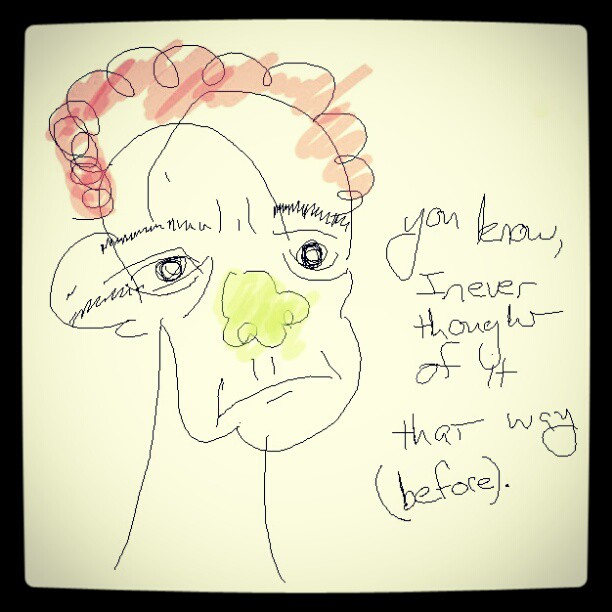 you know,
I never
thought
of it
that way
(before).